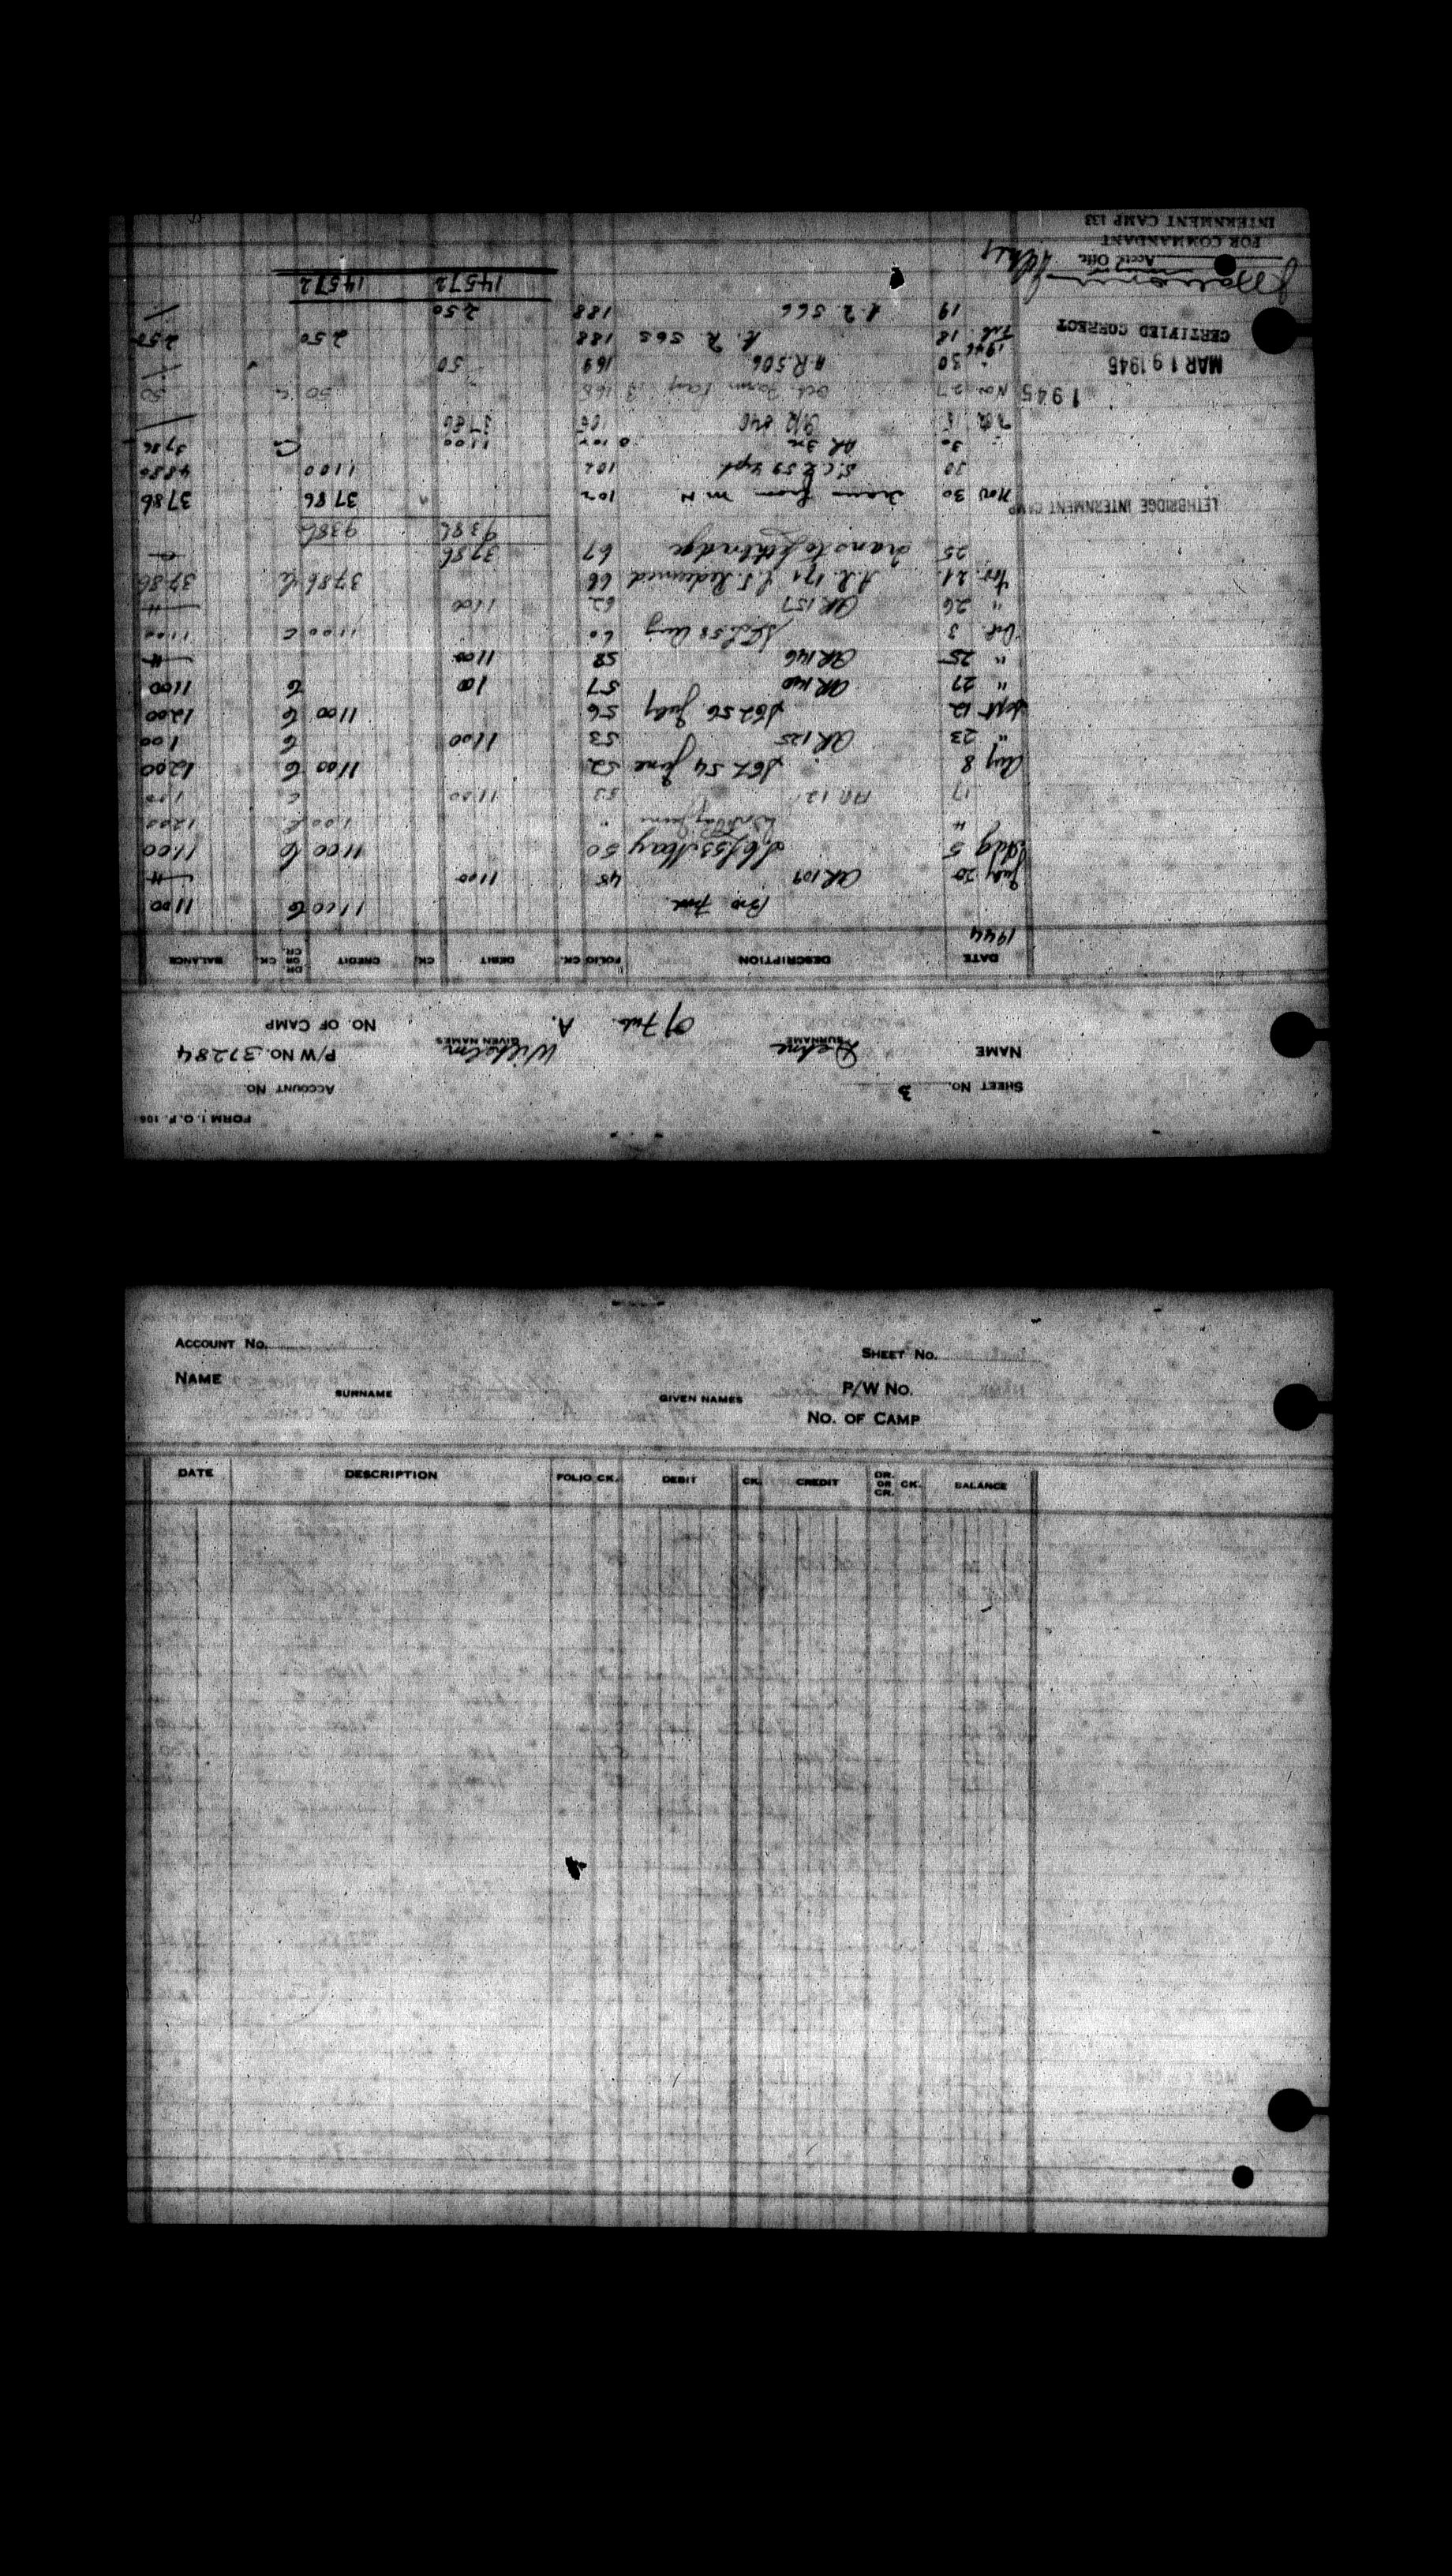 FORM I.O.P. 106
SHEET No. 3 ACCOUNT No.
NAME Dehne Wilhelm P/W No. 37284
SURNAME GIVEN NAMES
A. NO. OF CAMP
DATE DESCRIPTION FOLIO CK. DEBIT CK. CREDIT DR. OR CR. CK. BALANCE
1944
Bro Fwd 1100 C 1100
July 20 AR 109 45 1100
Aug 5 53 May 50 1100 C 1100
" " June " 1 00 C 1200
17 AR 121 53 1100 C 100
Aug 8 54 June 52 1100 C 1200
" 23 AR 125 53 1100 C 100
Sept 12 56 July 56 1100 C 1200
" 27 AR 140 57 100 C 1100
" 25 AR 146 58 1100
Oct. 3 58 Aug 60 1100 C 1100
" 26 AR 157 62 1100
Nov. 21 A.R. 171 Redeemed 66 3786 C 3786
25 Trans to Lethbridge 67 3786
9386 9386
LETHBRIDGE INTERNMENT CAMP
Nov 30 Trans from M N. 102 3786 3786
30 59 Sept 102 1100 4886
30 AR 1100 C 3786
840 3786
1945 Nov 27 Oct. Farm Pay 168 50 C 50
" 30 A.R. 506 169 50
MAR 19 1946
1946
Feb. 18 A. R. 565 188 2 50 2 50
CERTIFIED CORRECT
19 A.R. 566 188 2 50
14572 14572
Acct. Offr.
FOR COMMANDANT
INTERNMENT CAMP 133
ACCOUNT No. SHEET No.
NAME P/W No.
SURNAME GIVEN NAMES
No. OF CAMP
DATE DESCRIPTION FOLIO CK. DEBIT CK. CREDIT DR. OR CR. CK. BALANCE